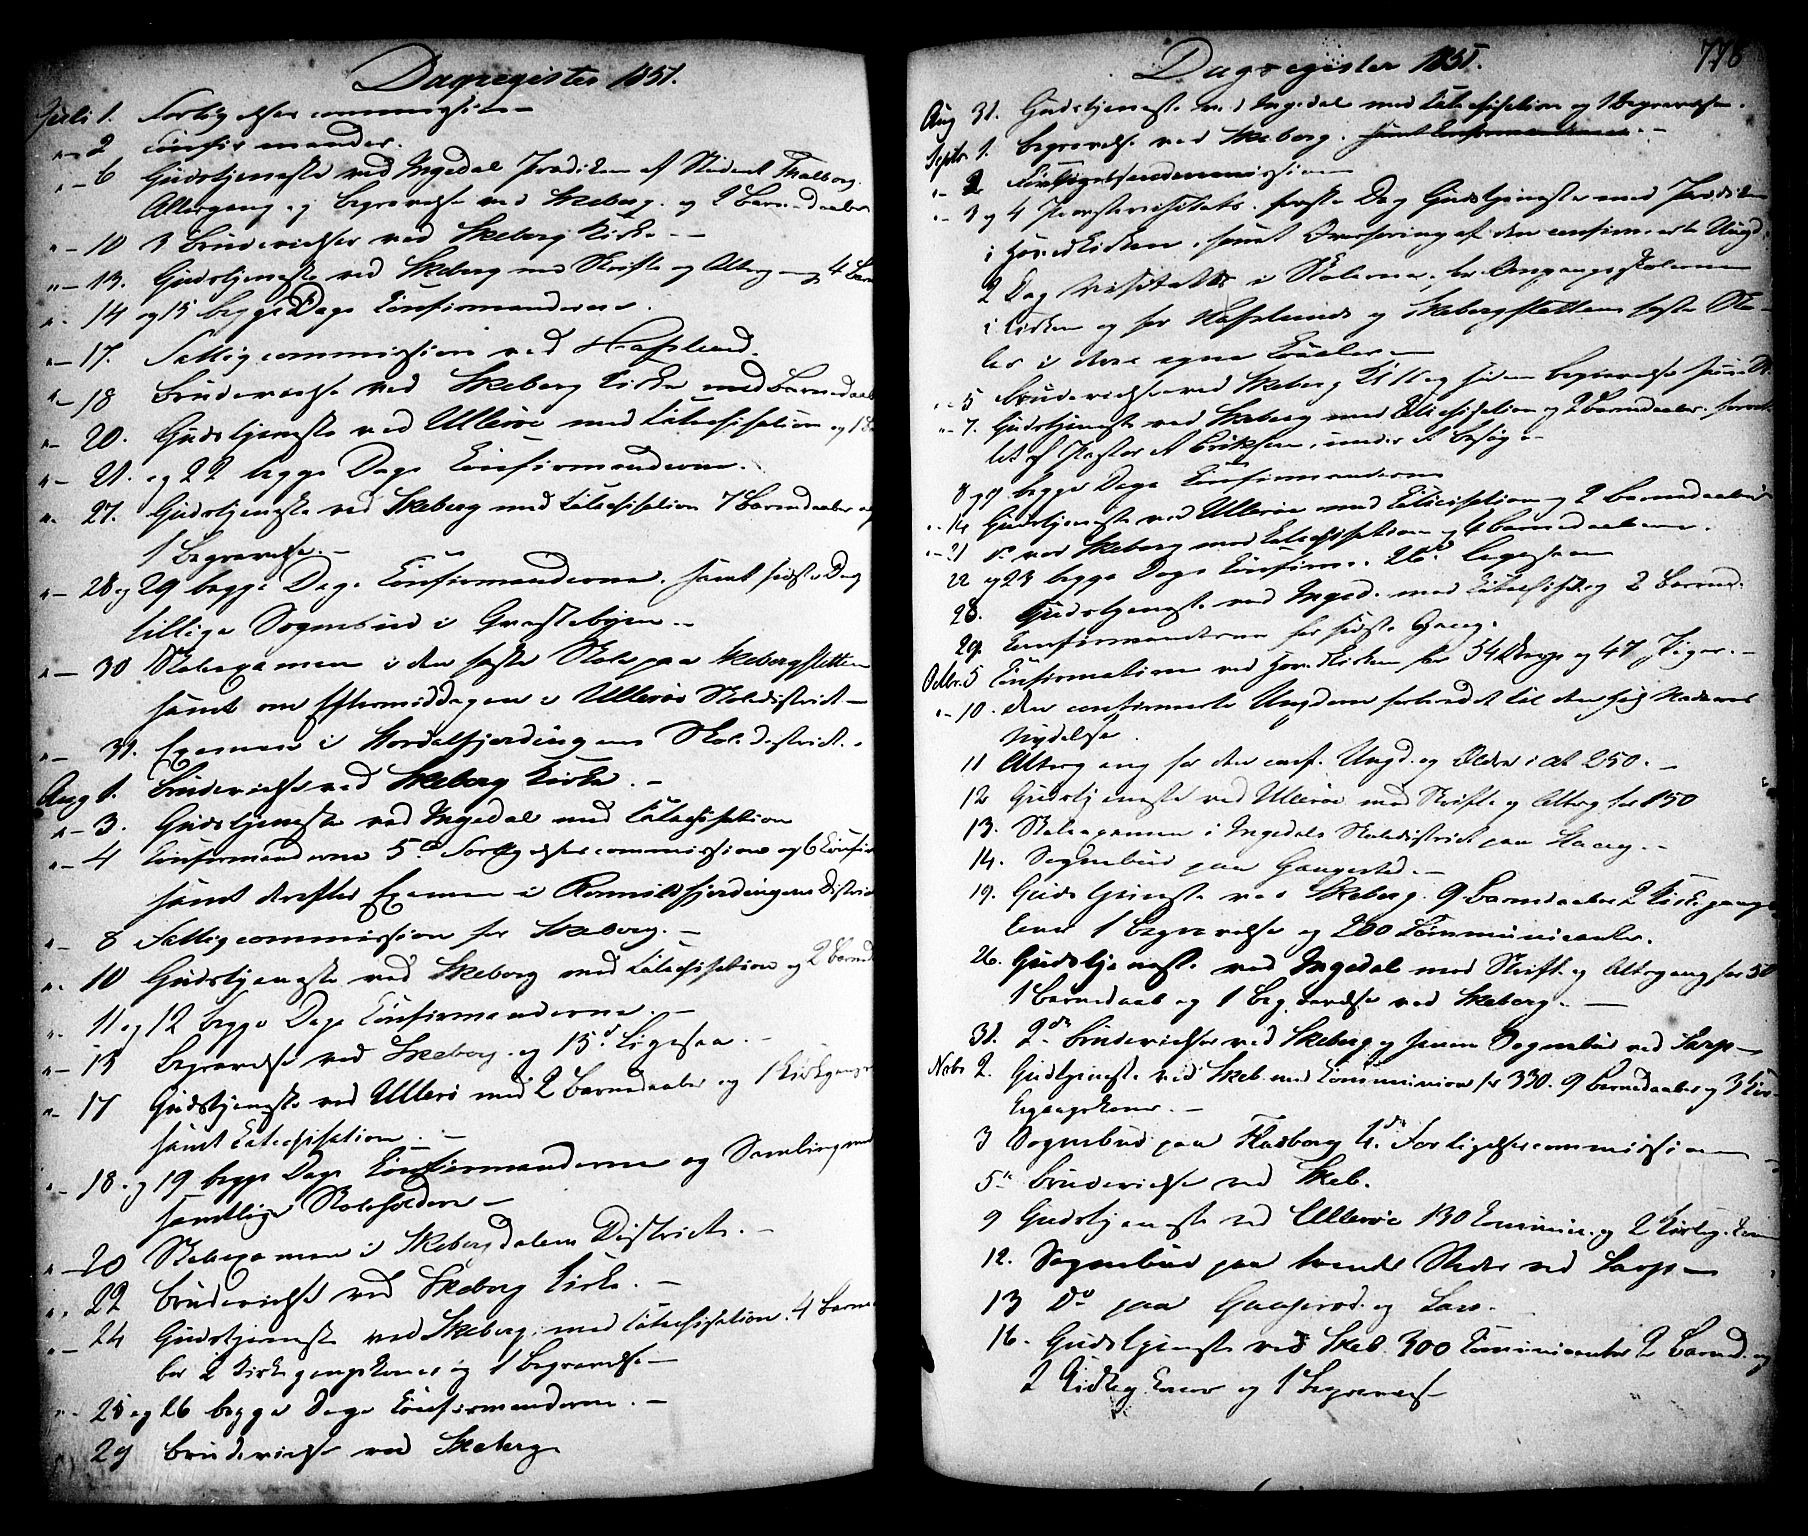 Dagsregister 1851.
Juli 1. Forligelsescommission
"- 2 Confirmander.
"- 6 Gudstjeneste ved Ingedal Prædiken af Student Thalberg.
Altergang og Begravelse ved Skeberg. og 2 Barnedaaber
"- 10 3 Brudevielser ved Skeberg Kirke --
"- 13. Gudstjeneste ved Skeberg med Skrifte og Alterg og 4 Barn
"- 14 og 15 begge Dage Confirmanderne.
"- 17. Fattigcommission ved Hafslund.
"- 18 Brudevielse ved Skeberg Kirke med Barnedaab
"- 20. Gudstjeneste ved Ullerøe med Catechisation og 1 Ba
"- 21. og 22 begge Dage Confirmanderne.
"- 27. Gudstjeneste ved Skeberg med Catechisation 7 Barnedaaber og
1 Begravelse. -
"- 28 og 29 begge Dage Confirmanderne. samt sidste Dag
tillige Sognebud i -
"- 30 Skolexamen i den faste Skole paa Skebergsletten
samt om Eftermiddagen i Ullerøe Skoledistrict -
"- 31. Examen i Skoledistrict. -
Aug 1. Brudevielse ved Skeberg Kirke. -
"- 3. Gudstjeneste ved Ingedal med Catechisation
"- 4 Confirmanderne 5te Forligelsescommission og 6 Confir
samt derefter Examen i District
"- 8 Fattigcommission for Skeberg. -
"- 10 Gudstjeneste ved Skeberg med Catechisation og 2 Barned
"- 11 og 12 begge Dage Confirmanderne. -
"- 13 Begravelse ved Skeberg. og 15d Ligesaa. -
"- 17 Gudstjeneste ved Ullerö med 2 Barnedaaber og 1 Kirkegangs
samt Catechisation. -
"- 18. og 19 begge Dage Confirmanderne og Samling med
samtlige Skoleholdere -
"- 20 Skolexamen i Skebergdalens District. -
"- 22 Brudevielse ved Skeberg Kirke. -
"- 24 Gudstjeneste ved Skeberg. med Catechisation. 4 Barne
ber 2 Kirkegangskoner og 1 Begravelse -
"- 25 og 26 begge Dage Confirmanderne. -
29 Brudevielse ved Skeberg
Dagsregister 1851.
775
Aug 31. Gudstjeneste ved Ingedal med Catechisation og 1 Begravelse.
Septbr 1. Begravelse ved Skeberg. samt Confirmanderne. -
"- 2 Forligelsescommission
"- 3 og 4 første Dag Gudstjeneste med Prædiken
i Hovedkirken, samt Overhøring af den confirmerte Ungd.
2 Dag Visitats i Skolerne, for Omgangsskolerne
i Kirken og for Hafslunds og Skebergslettens faste Sko-
ler i deres egne Localer -
"- 5 Brudevielse ved Skeberg Kl 11 og siden Begravelse
"- 7. Gudstjeneste ved Skeberg med Catechisation og 2 Barnedaaber. forret
tet af Pastor A Eriksen, under et Besøg -
8 og 9 begge Dage Confirmanderne
"- 14 Gudstjeneste ved Ullerøe med Catechisation og 2 Barnedaaber
"- 21 do ved Skeberg med Catechisation og 4 Barnedaaberne.
22 og 23 begge Dage Confirm. 26d Ligesaa
28. Gudstjeneste ved Inged. med Catechisat. og 2 Barned.
29. Confirmanderne for sidste Gang.
Octbr. 5 Confirmation ved Hov. Kirken for 54 Drenge og 47 Piger. -
"- 10. den confirmerte Ungdom forberedet til den hel. Nadveres
Nydelse.
11 Alterg ang for den conf. Ungd. og Ældre i alt 250. -
12 Gudstjeneste ved Ullerøe med Skrifte og Alterg for 150
13. Skolexamen i Ingedals Skoledistrict paa Haag. -
14. Sognebud paa -
19. Gudstjeneste ved Skeberg. 9 Barnedaaber 2 Kirkegangs
koner 1 Begravelse og 200 Communicanter.
26. Gudstjeneste ved Ingedal med Skrift. og Altergang for 50
1 Barnedaab og 1 Begravelse ved Skeberg. -
31. 2de Brudevielser ved Skeberg og senere Sognebud ved Sarp -
Novbr 2. Gudstjeneste ved Skeb. med Communion for 330. 9 Barnedaaber og 3 Kir-
kegangskoner. -
3 Sognebud paa 4de Forligelsescommission -
5te Brudevielse ved Skeb.
9 Gudstjeneste ved Ullerøe 130 Commun. og 2 Kirkeg. koner
12. Sognebud paa tvende Steder ved Sarp -
13 Do paa og -
16. Gudstjeneste ved Skeb. 300 Communicanter 2 Barned. og
2 Kirkeg. koner og 1 Begravelse